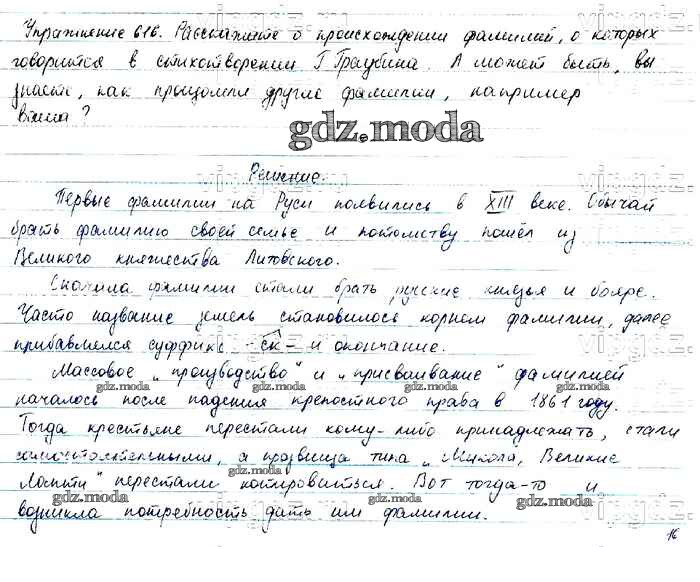 Упражнение 616. Расскажите о происхождении фамилий, о которых
говорится в стихотворении Г. Граубина. А может быть, вы
знаете, как произошли другие фамилии, например
ваша?
gdz.moda
Решение.
Первые фамилии на Руси появились в XIII веке. Обычай
брать фамилию своей семье и потомству пошёл из
Великого княжества Литовского.
Сначала фамилии стали брать русские князья и бояре.
Часто название земель становилось корнем фамилии, далее
прибавлялся суффикс -ск- и окончание.
Массовое „производство" и „присваивание" фамилией
gdz.moda gdz.moda gdz.moda
началось после падения крепостного права в 1861 году.
Тогда крестьяне перестали кому-либо принадлежать, стали
gdz.moda gdz.moda
самостоятельными, а прозвища типа „Микола, Великие
Лапти" перестали котироваться. Вот тогда-то и
gdz.moda gdz.moda gdz.moda
возникла потребность дать им фамилии.
16